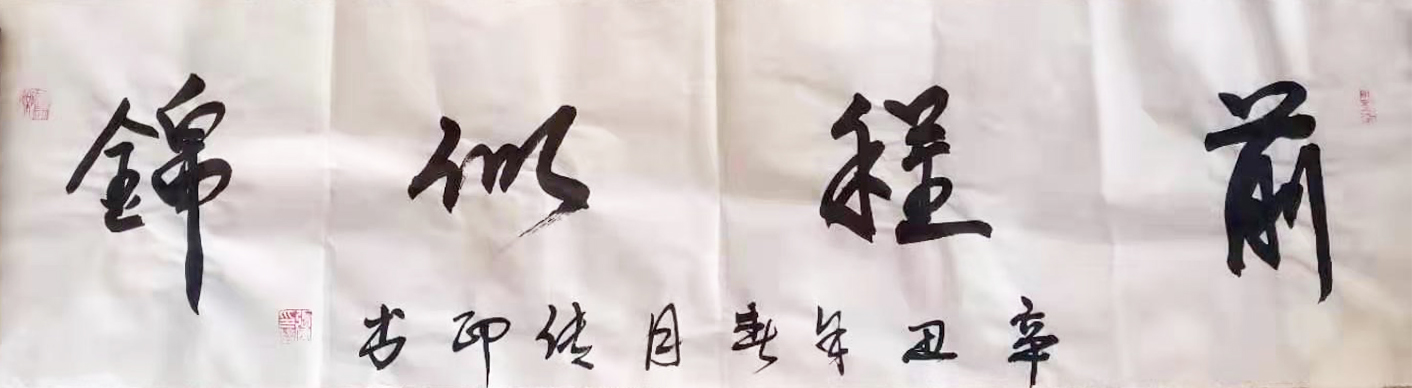 前程似錦
辛丑年春月传印书